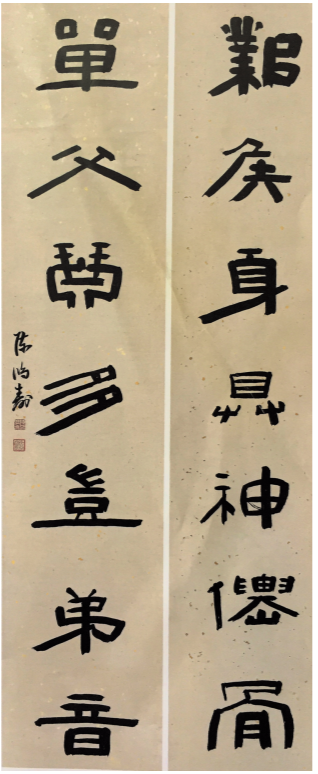 鄴侯身具神僊骨
單父琴多豈弟音
陳鴻壽